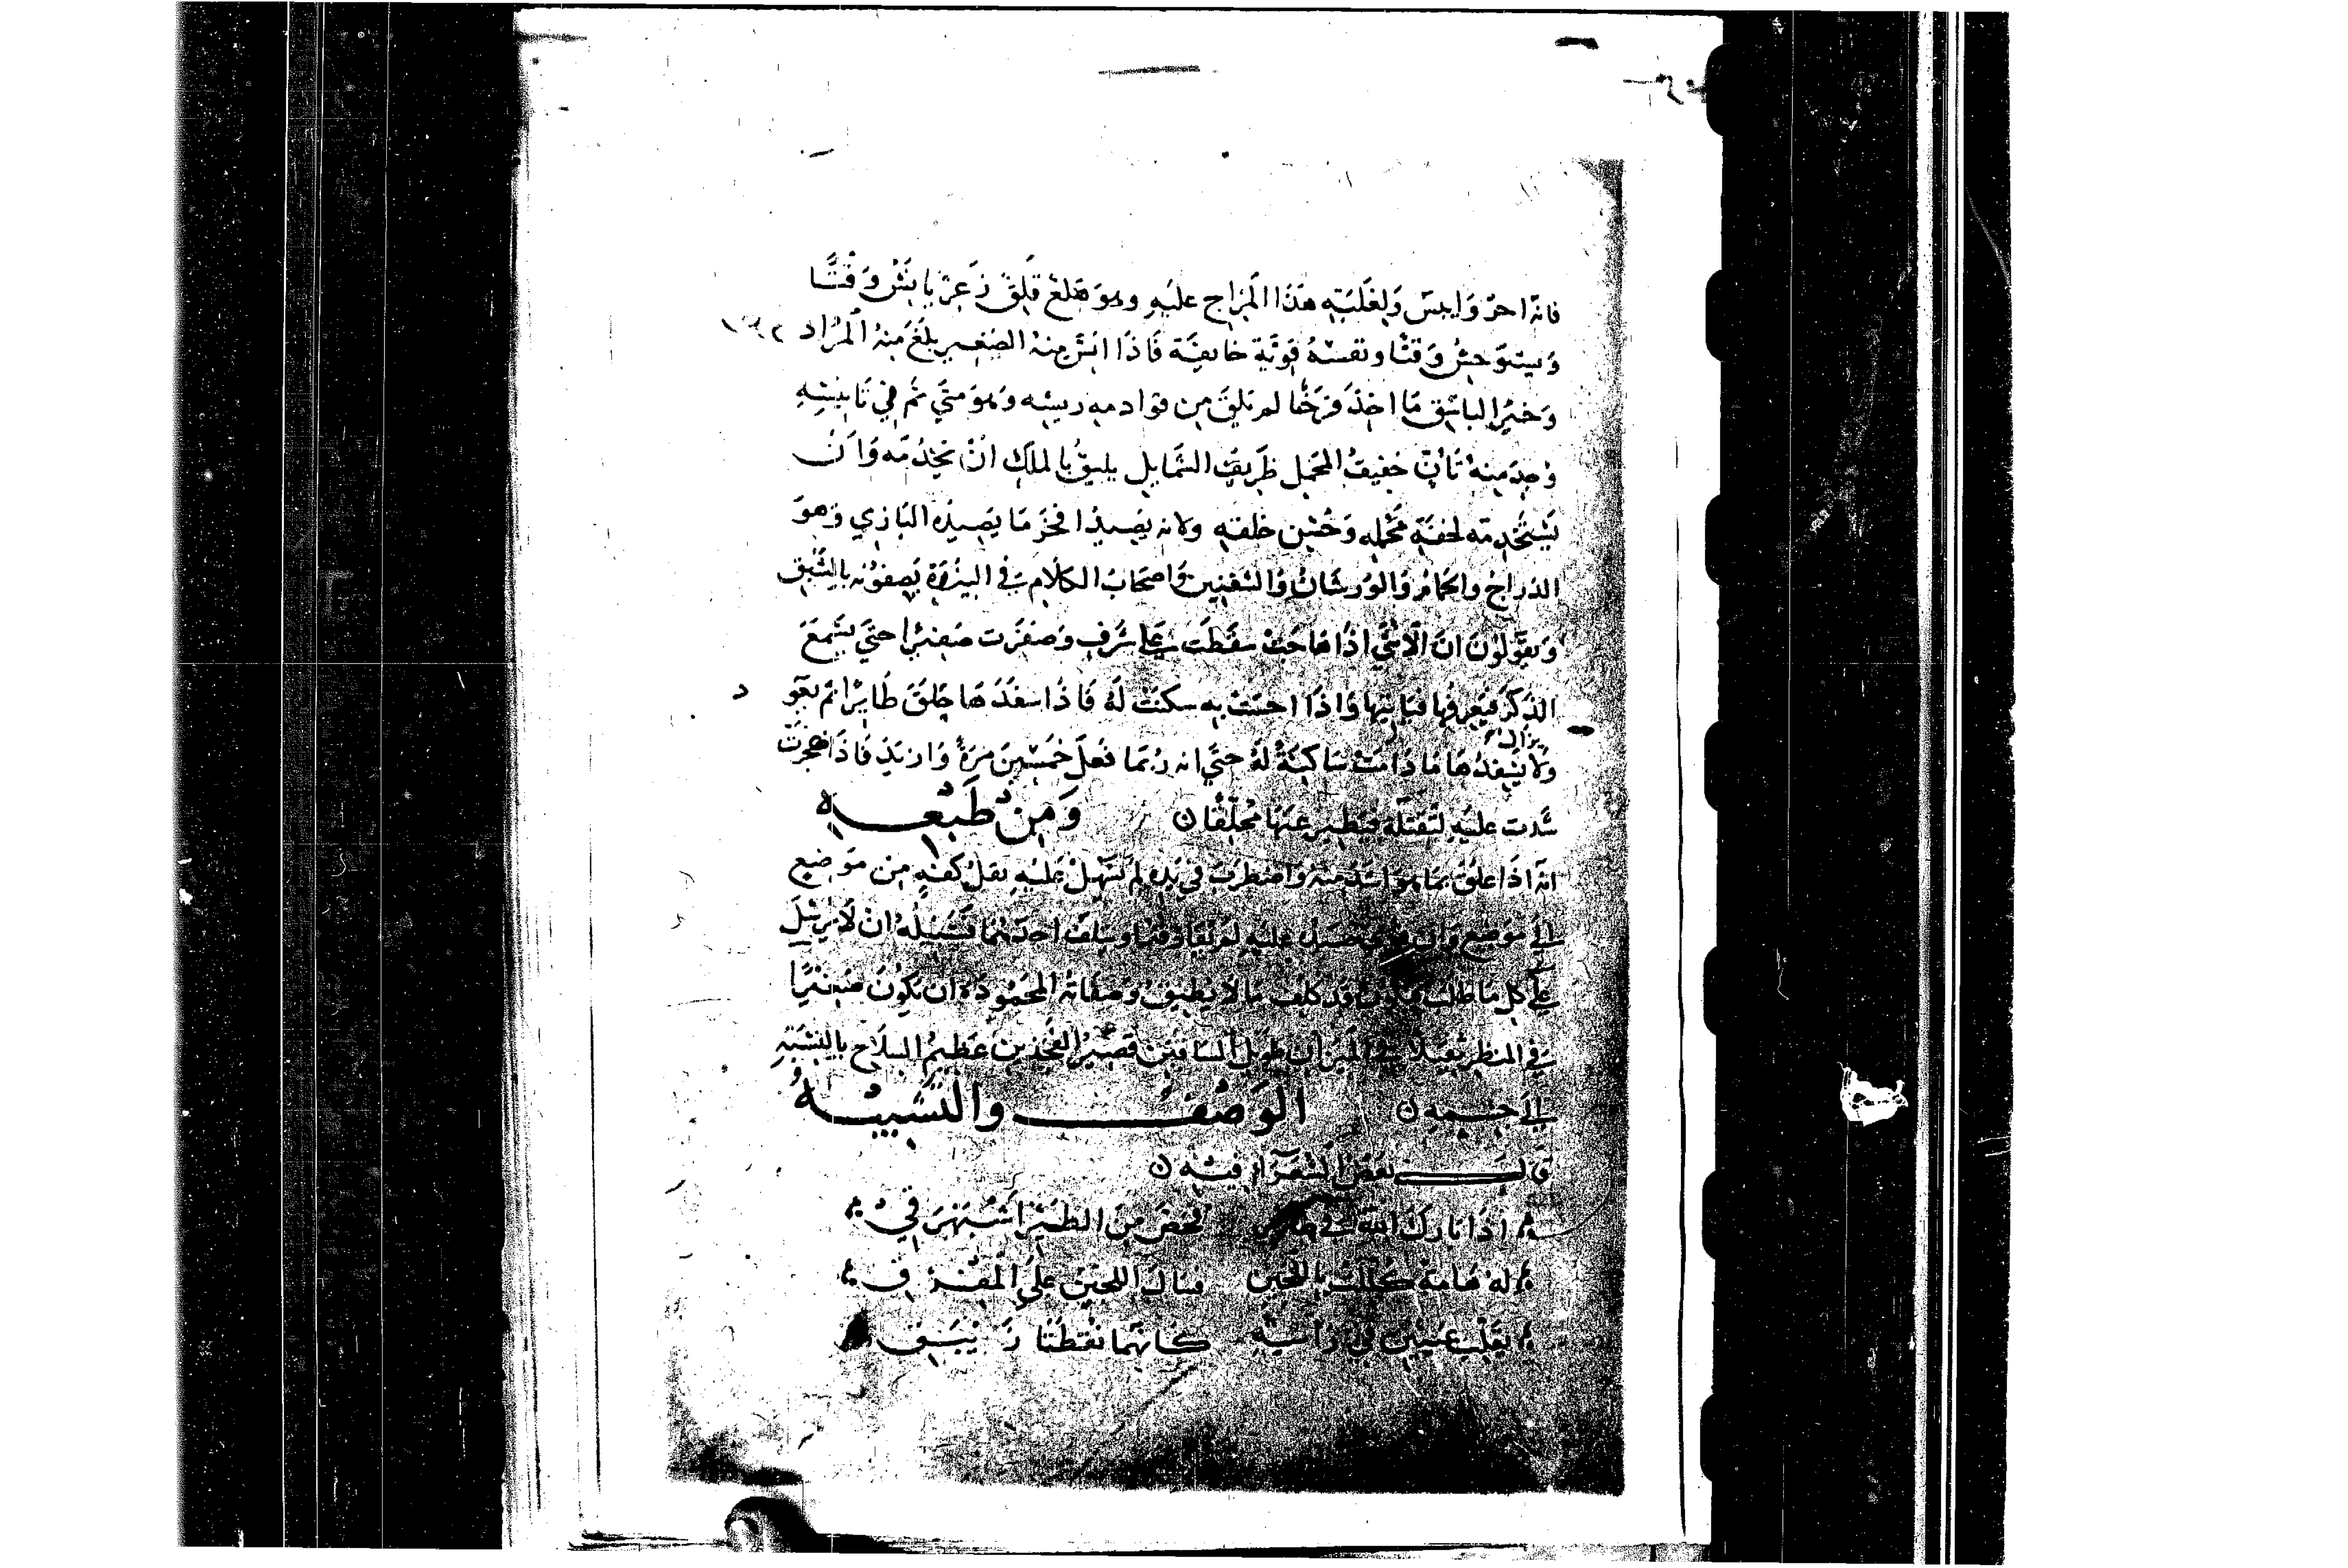 فانه احرّ وَايبسَ وَلِغَلَبَتِهِ هَذَا المِزَاج عليهِ وهوَ هَلِعٌ قَلِقٌ ذَعِرٌ يانَسُ وَقْتًا
وَيستوحِشُ وَقتًا ونفسُهُ قويّة خايفة فَاذَا انسَ مِنهُ الصَغير بلَغَ مِنهُ المُرَاد
وَخيرُ الباشق مَا اخِذَ فَرخًا لم يلق من قوادمه ريشه وَهوَ متَي تمّ في تَانيسِهِ
وُجدَ مِنهُ بَازٍ خفيفُ المحمِل ظَريفُ الشَّمايل يليقُ بالملك انْ تخدُمَه وَانْ
يَسْتَخدِمَه لخفّةِ مَحْمله وَحُسْنِ خلقه ولانه يَصيدُ افخَر مَا يَصِيدُه البَازي وَهوَ
الدراج والحمَام وَالوَرشَانُ وَالشفنين وَاصحَابُ الكلام في البيزرَة يَصِفونه بالشَّبق
وَيقولونَ انَّ الانثَى اذَا هَاجَتْ سقَطَت عَلى شَرفٍ وَصَفَرَت صَفيرًا حتَى يسمعَ
الذكَر فيَعرفها فيَاتيها وَاذَا احسّتْ به سكنَتْ لَهُ فَاذَا سفَدَهَا حلَّقَ طَايرًا ثم يعَود
ولا يزال يسفدُهَا مَا دَامَت سَاكنة لهُ حتَي انه ربّما فعَلَ خمسينَ مَرة وَازيد فَاذَا ضجرَتْ
شَدت عليه لتقتله فيَطير عَنهَا مُحلّقًا ۞ وَمِنْ طَبْعِهِ
انه اذَا علقَ بمَا هوَ اشدّ منهُ وَاضطربَ في يَدِه لم يَسْهلْ عَليهِ نقلُ كفهِ مِن مَوضع
الَي مَوضع وَان لم يحصل عليه لم يفَارقه او يتلف احَدهُمَا فسَبيلُهُ ان لا يرسَل
علَي كل مَا طلب وَصفَاته المحمُودَة ان يَكونَ صَغيرًا
في المنظر ثقيلا في الميزان طويل السَاقين قصيرُ الفخذين عَظيمُ السلاح بالنسبَةِ
الَي جسمه ۞ الوَصْفُ والتَّشبيهُ
قالـــــ بعضُ الشعرَآءِ فيه ۞
اذَا بَارَكَ اللهُ في طَايرٍ فخصّ مِنَ الطَيرِ اسْبَهْرَقي
لهُ هَامة كُللتْ باللُّجين فسَالَ اللجين علَى المفْرق
يقلبُ عينَينِ في رَاسهِ كَانهمَا نقطتَا زَيْبقِ